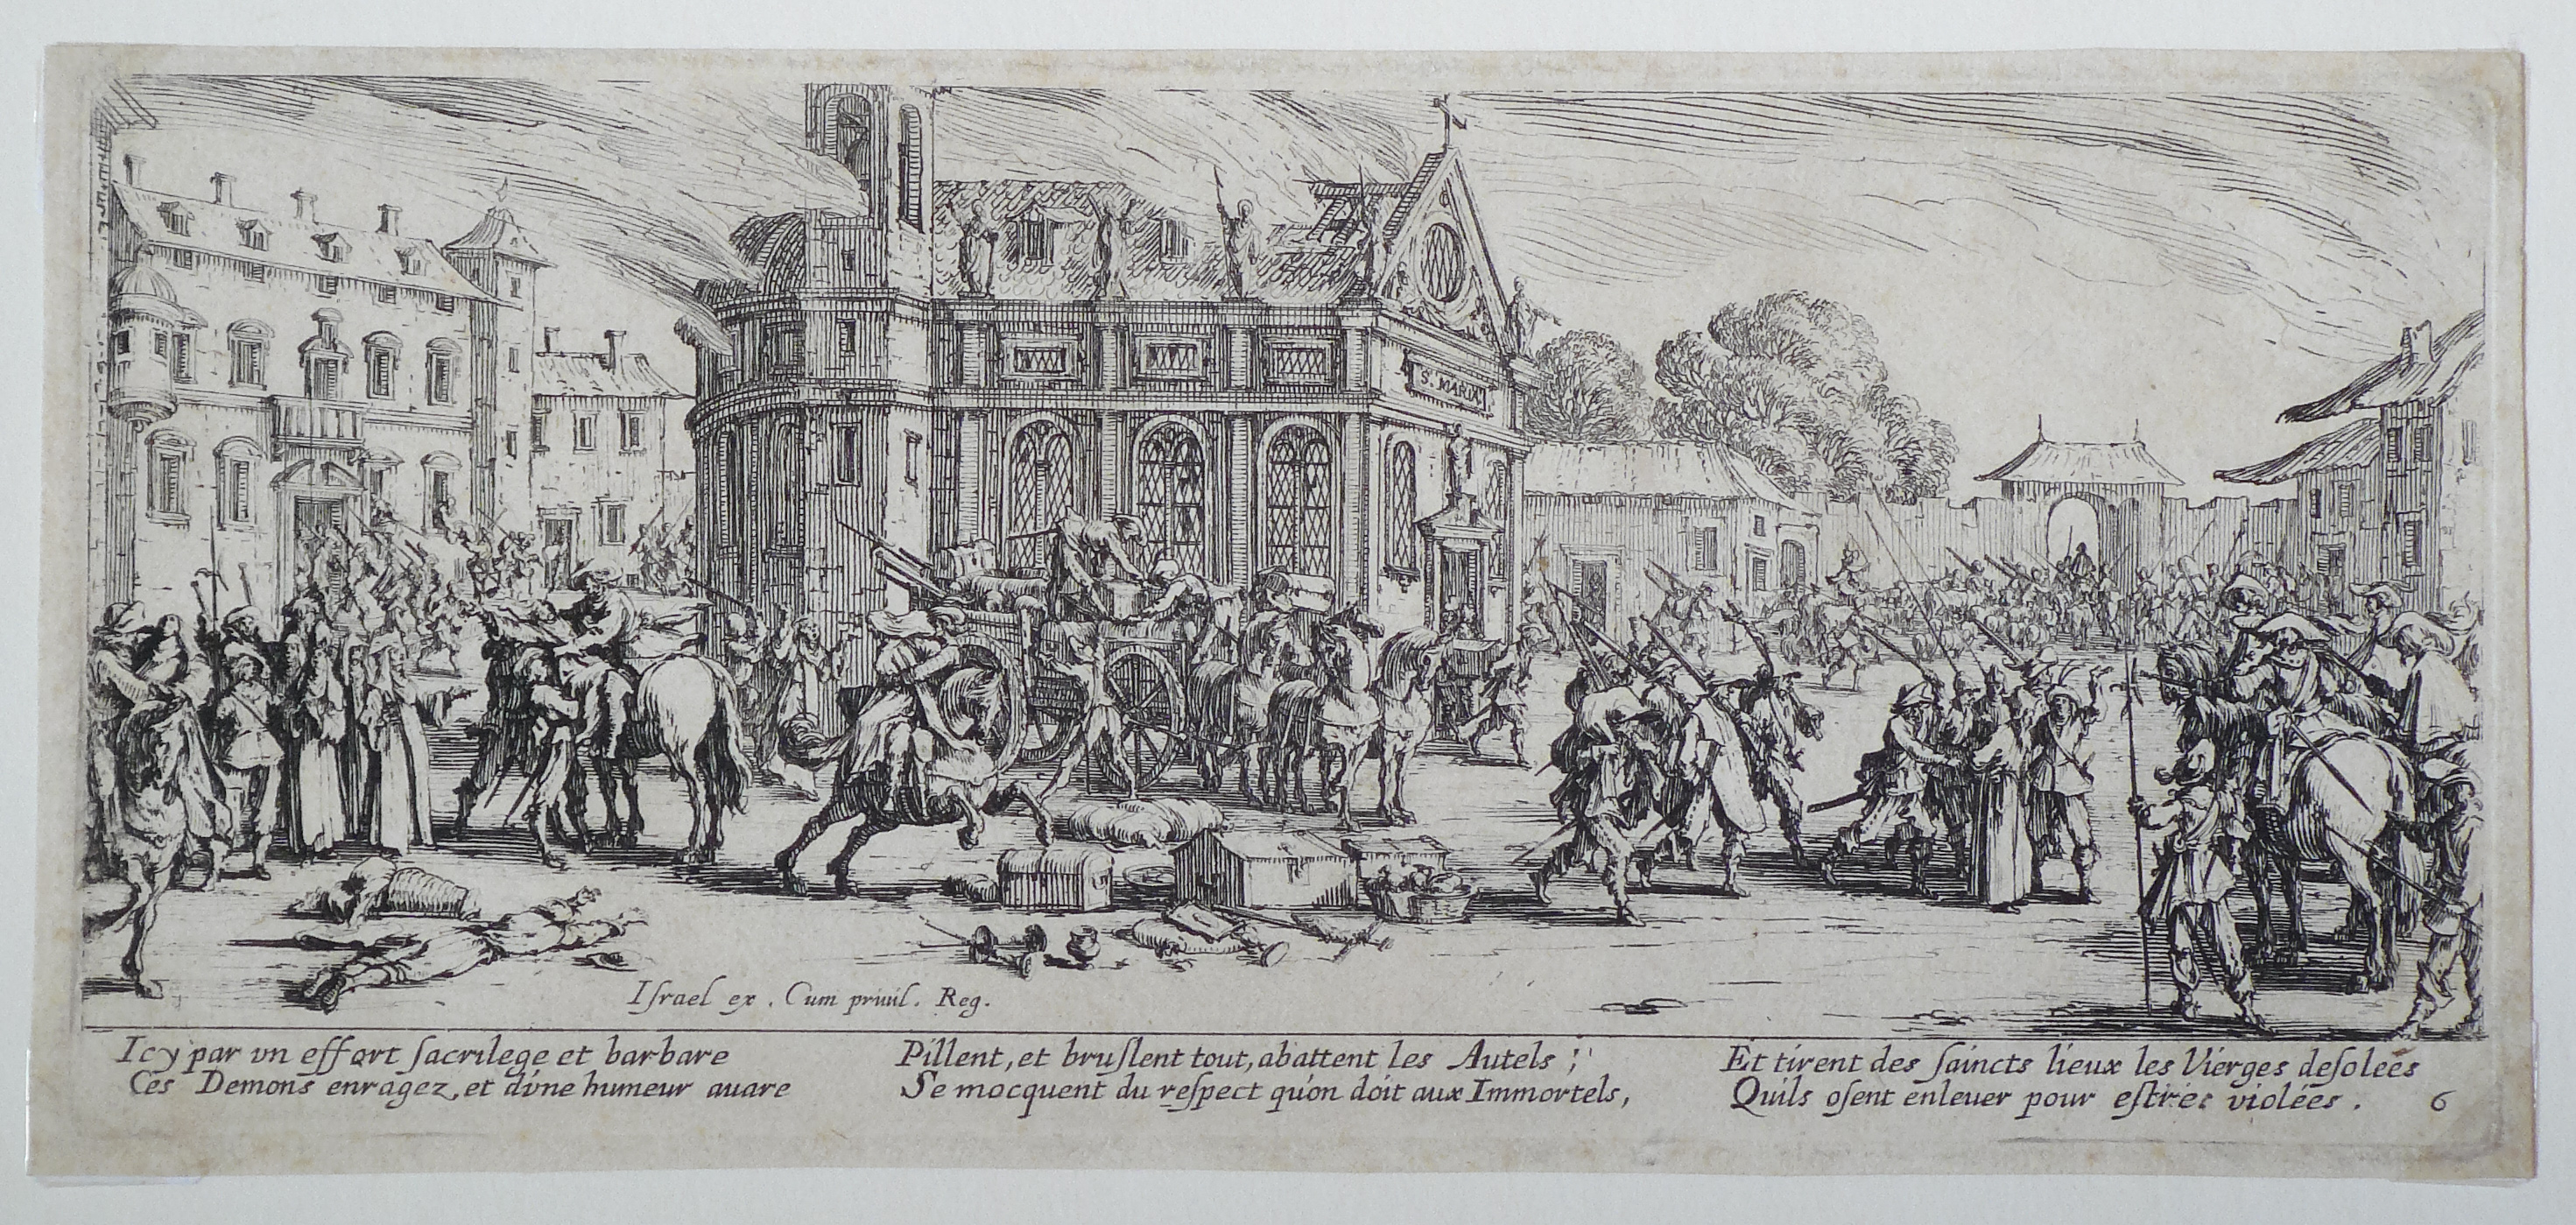 S. MARIA
Iſrael ex. Cum priuil. Reg.
Icy par vn effort ſacrilege et barbare
Ces Demons enragez, et d'vne humeur auare
Pillent, et bruſlent tout, abattent les Autels ;
Se mocquent du reſpect qu'on doit aux Immortels,
Et tirent des ſaincts lieux les Vierges deſolées
Quils oſent enleuer pour eſtre violées.
6